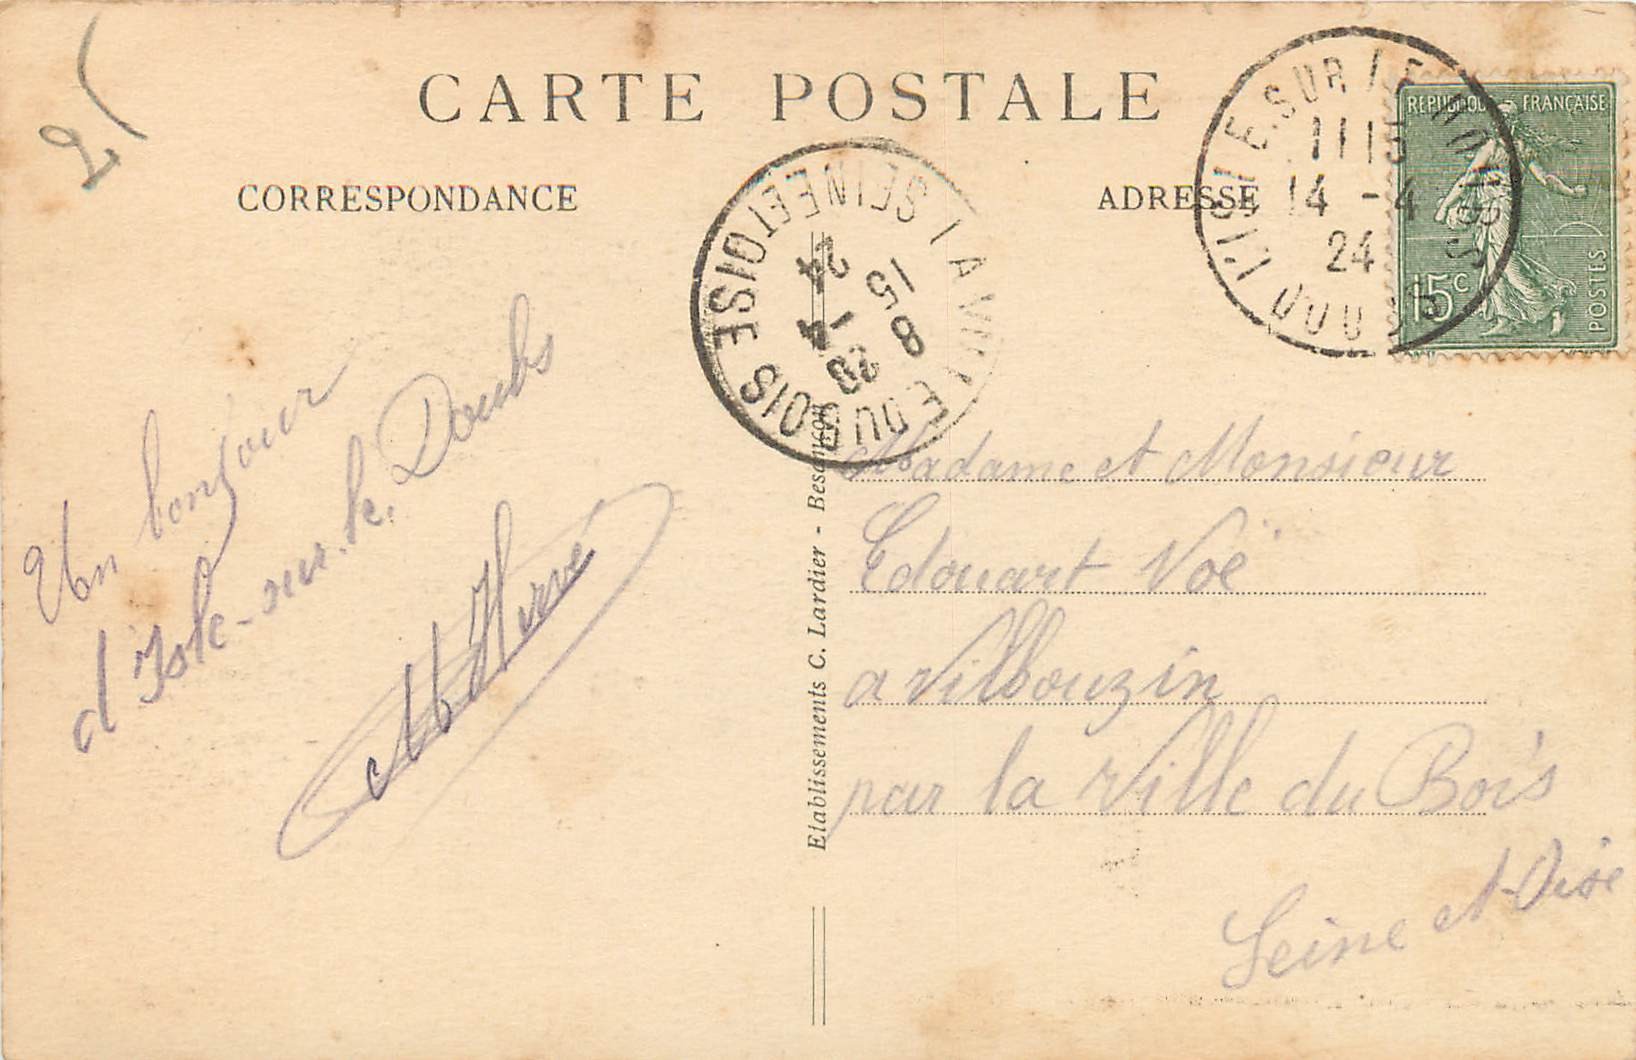 25
CARTE POSTALE
CORRESPONDANCE
ADRESSE
L'ISLE-SUR-LE-DOUBS
DOUBS
1115
14 -4
24
REPUBLIQUE FRANÇAISE
15c
POSTES
LA VILLE DU BOIS
SEINE ET OISE
8 20
15 -4
24
Un bonjour
d'Isle-sur-le-Doubs
M Hervé
Etablissements C. Lardier - Besançon
Madame et Monsieur
Edouart Noë
a Villbouzin
par la Ville du Bois
Seine et-Oise